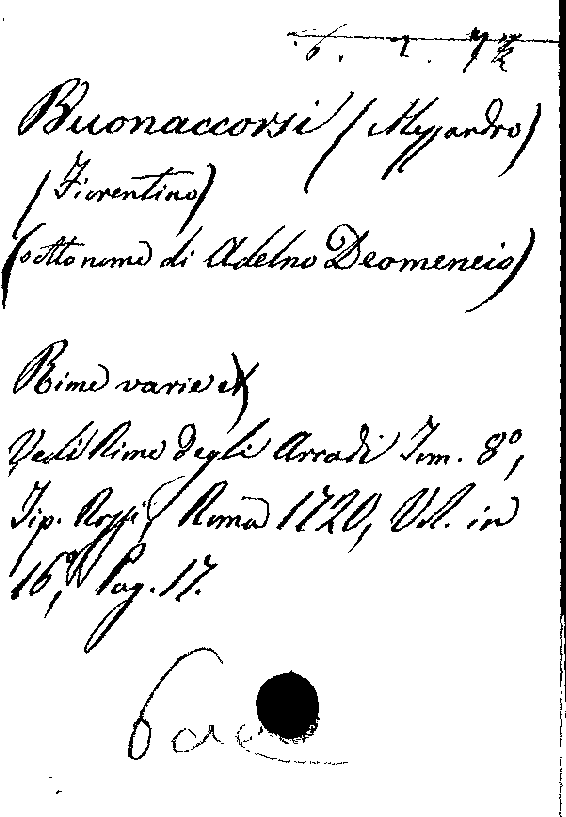 6. 2. 42
Buonaccorsi (Alessandro)
(Fiorentino)
(sotto nome di Adelno Deomeneio)
Rime varie
Vedi Rime degli Arcadi Tom. 8º,
Tip. Rossi, Roma 1720, Vol. in
16º, Pag. 17.